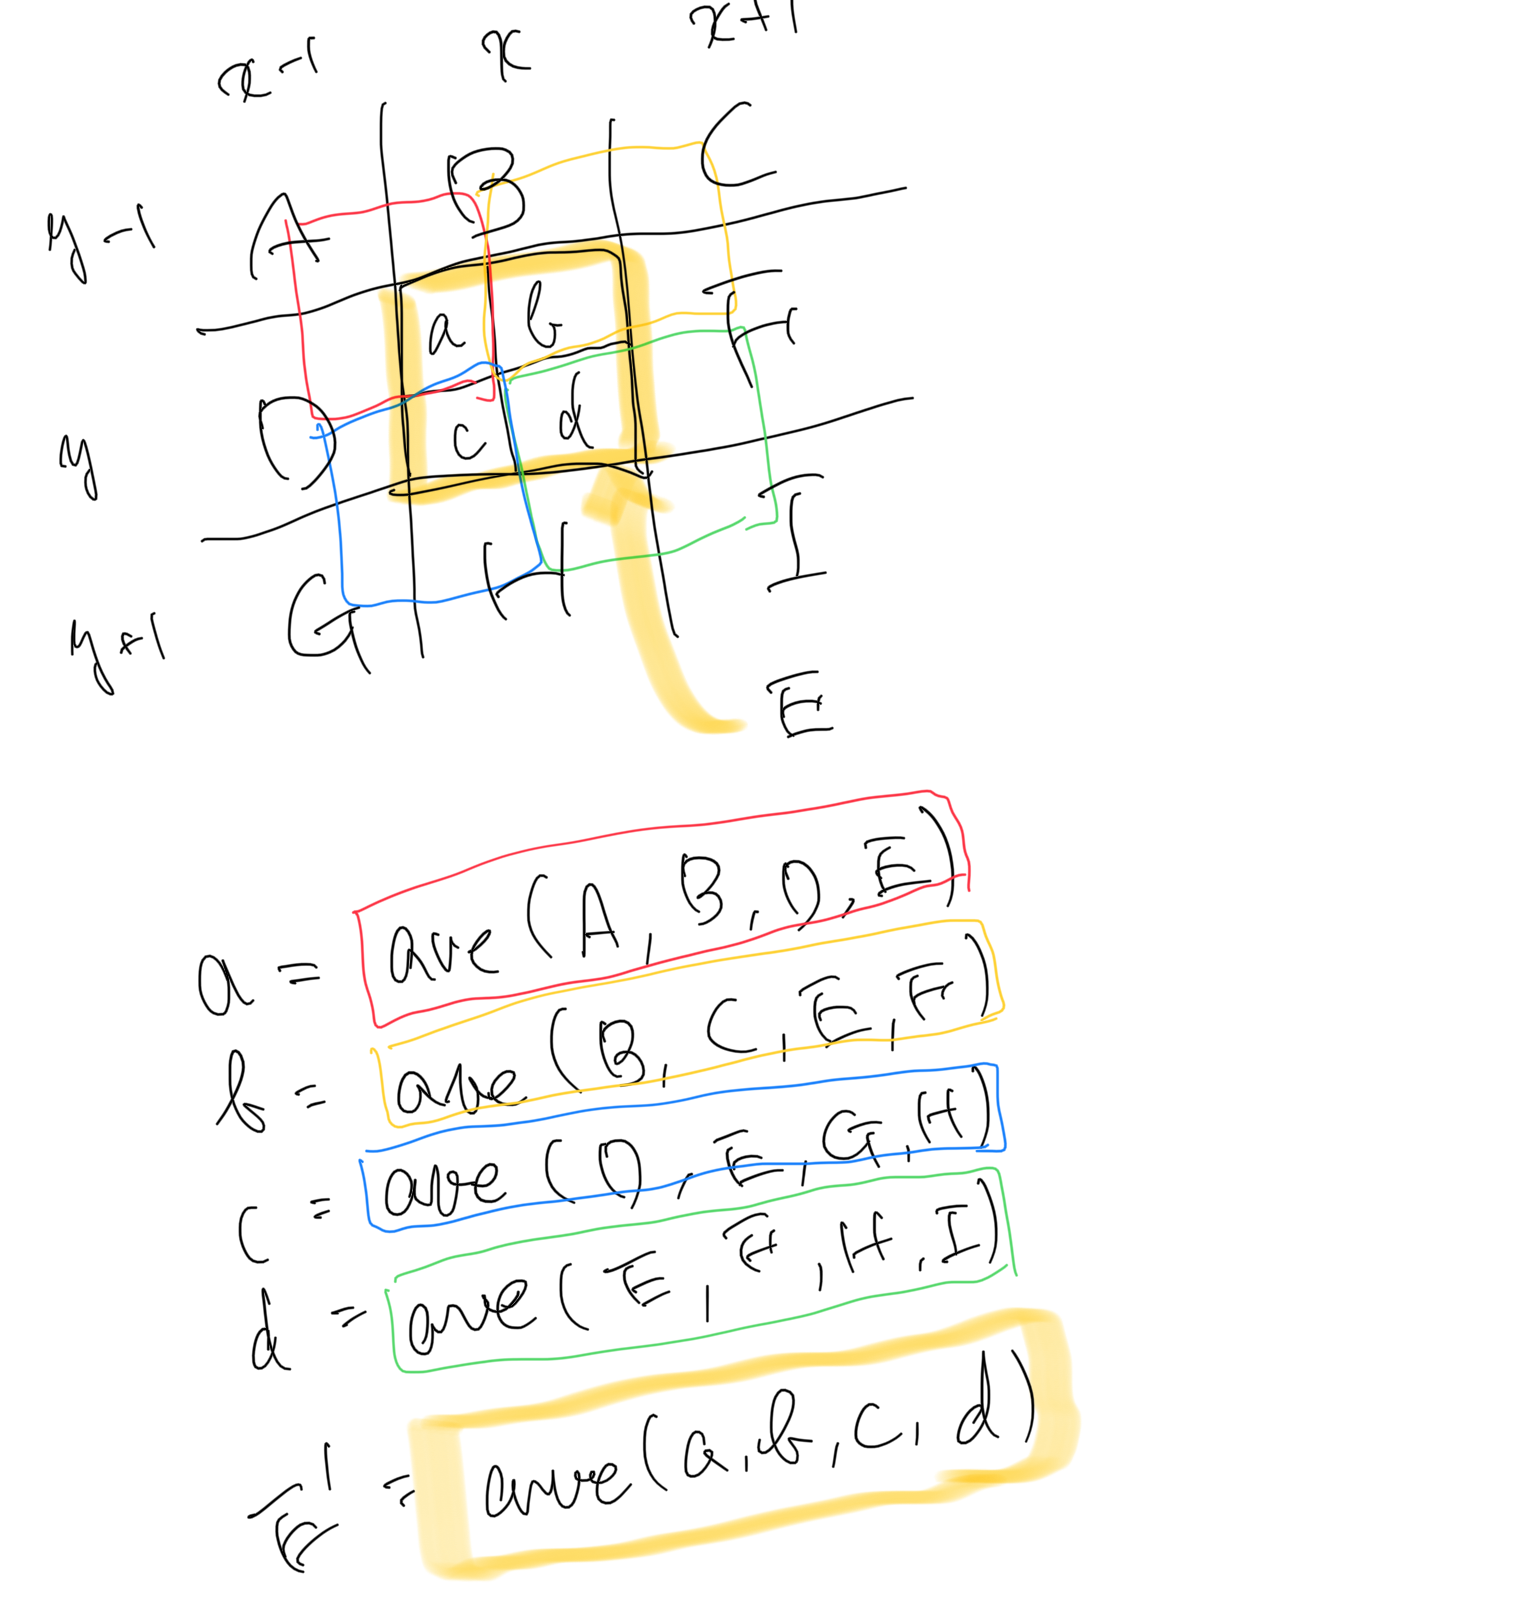 x-1 x x+1
y-1 A B C
a b
y D c d F
y+1 G H I
E
a = ave(A, B, D, E)
b = ave(B, C, E, F)
c = ave(D, E, G, H)
d = ave(E, F, H, I)
E' = ave(a, b, c, d)